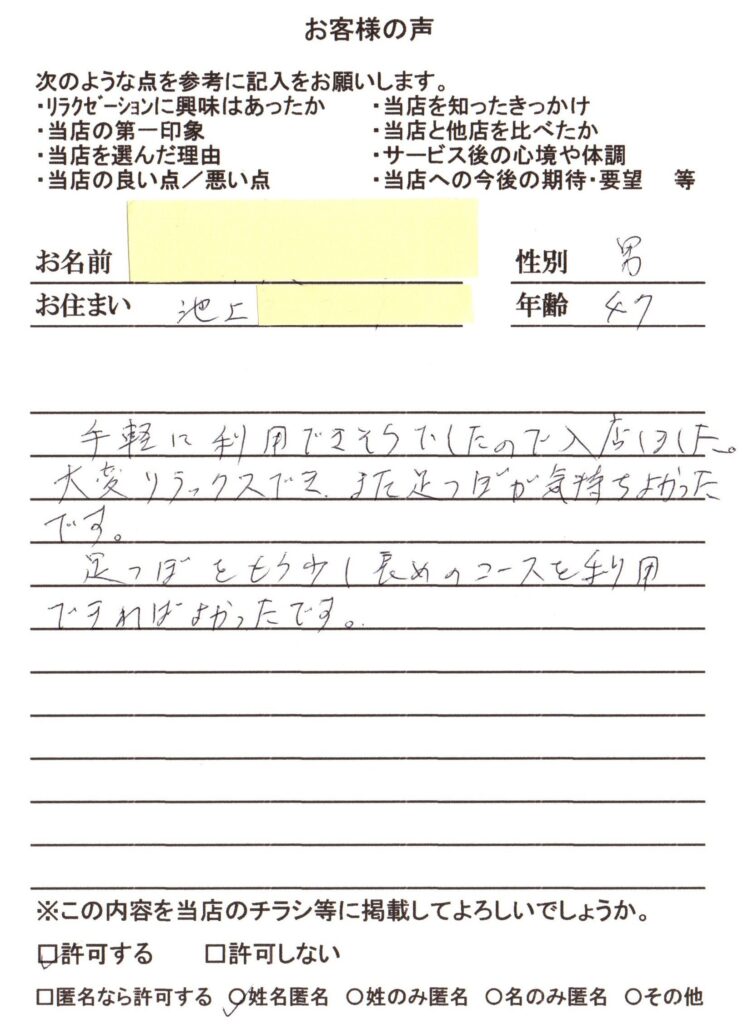 お客様の声
次のような点を参考に記入をお願いします。
・ﾘﾗｸｾﾞｰｼｮﾝに興味はあったか ・当店を知ったきっかけ
・当店の第一印象 ・当店と他店を比べたか
・当店を選んだ理由 ・サービス後の心境や体調
・当店の良い点／悪い点 ・当店への今後の期待・要望 等
お名前 性別 男
お住まい 池上 年齢 47
手軽に利用できそうでしたので入店しました。
大変リラックスでき、また足つぼが気持ちよかった
です。
足つぼをもう少し長めのコースを利用
できればよかったです。
※この内容を当店のチラシ等に掲載してよろしいでしょうか。
□許可する □許可しない
□匿名なら許可する ○姓名匿名 ○姓のみ匿名 ○名のみ匿名 ○その他